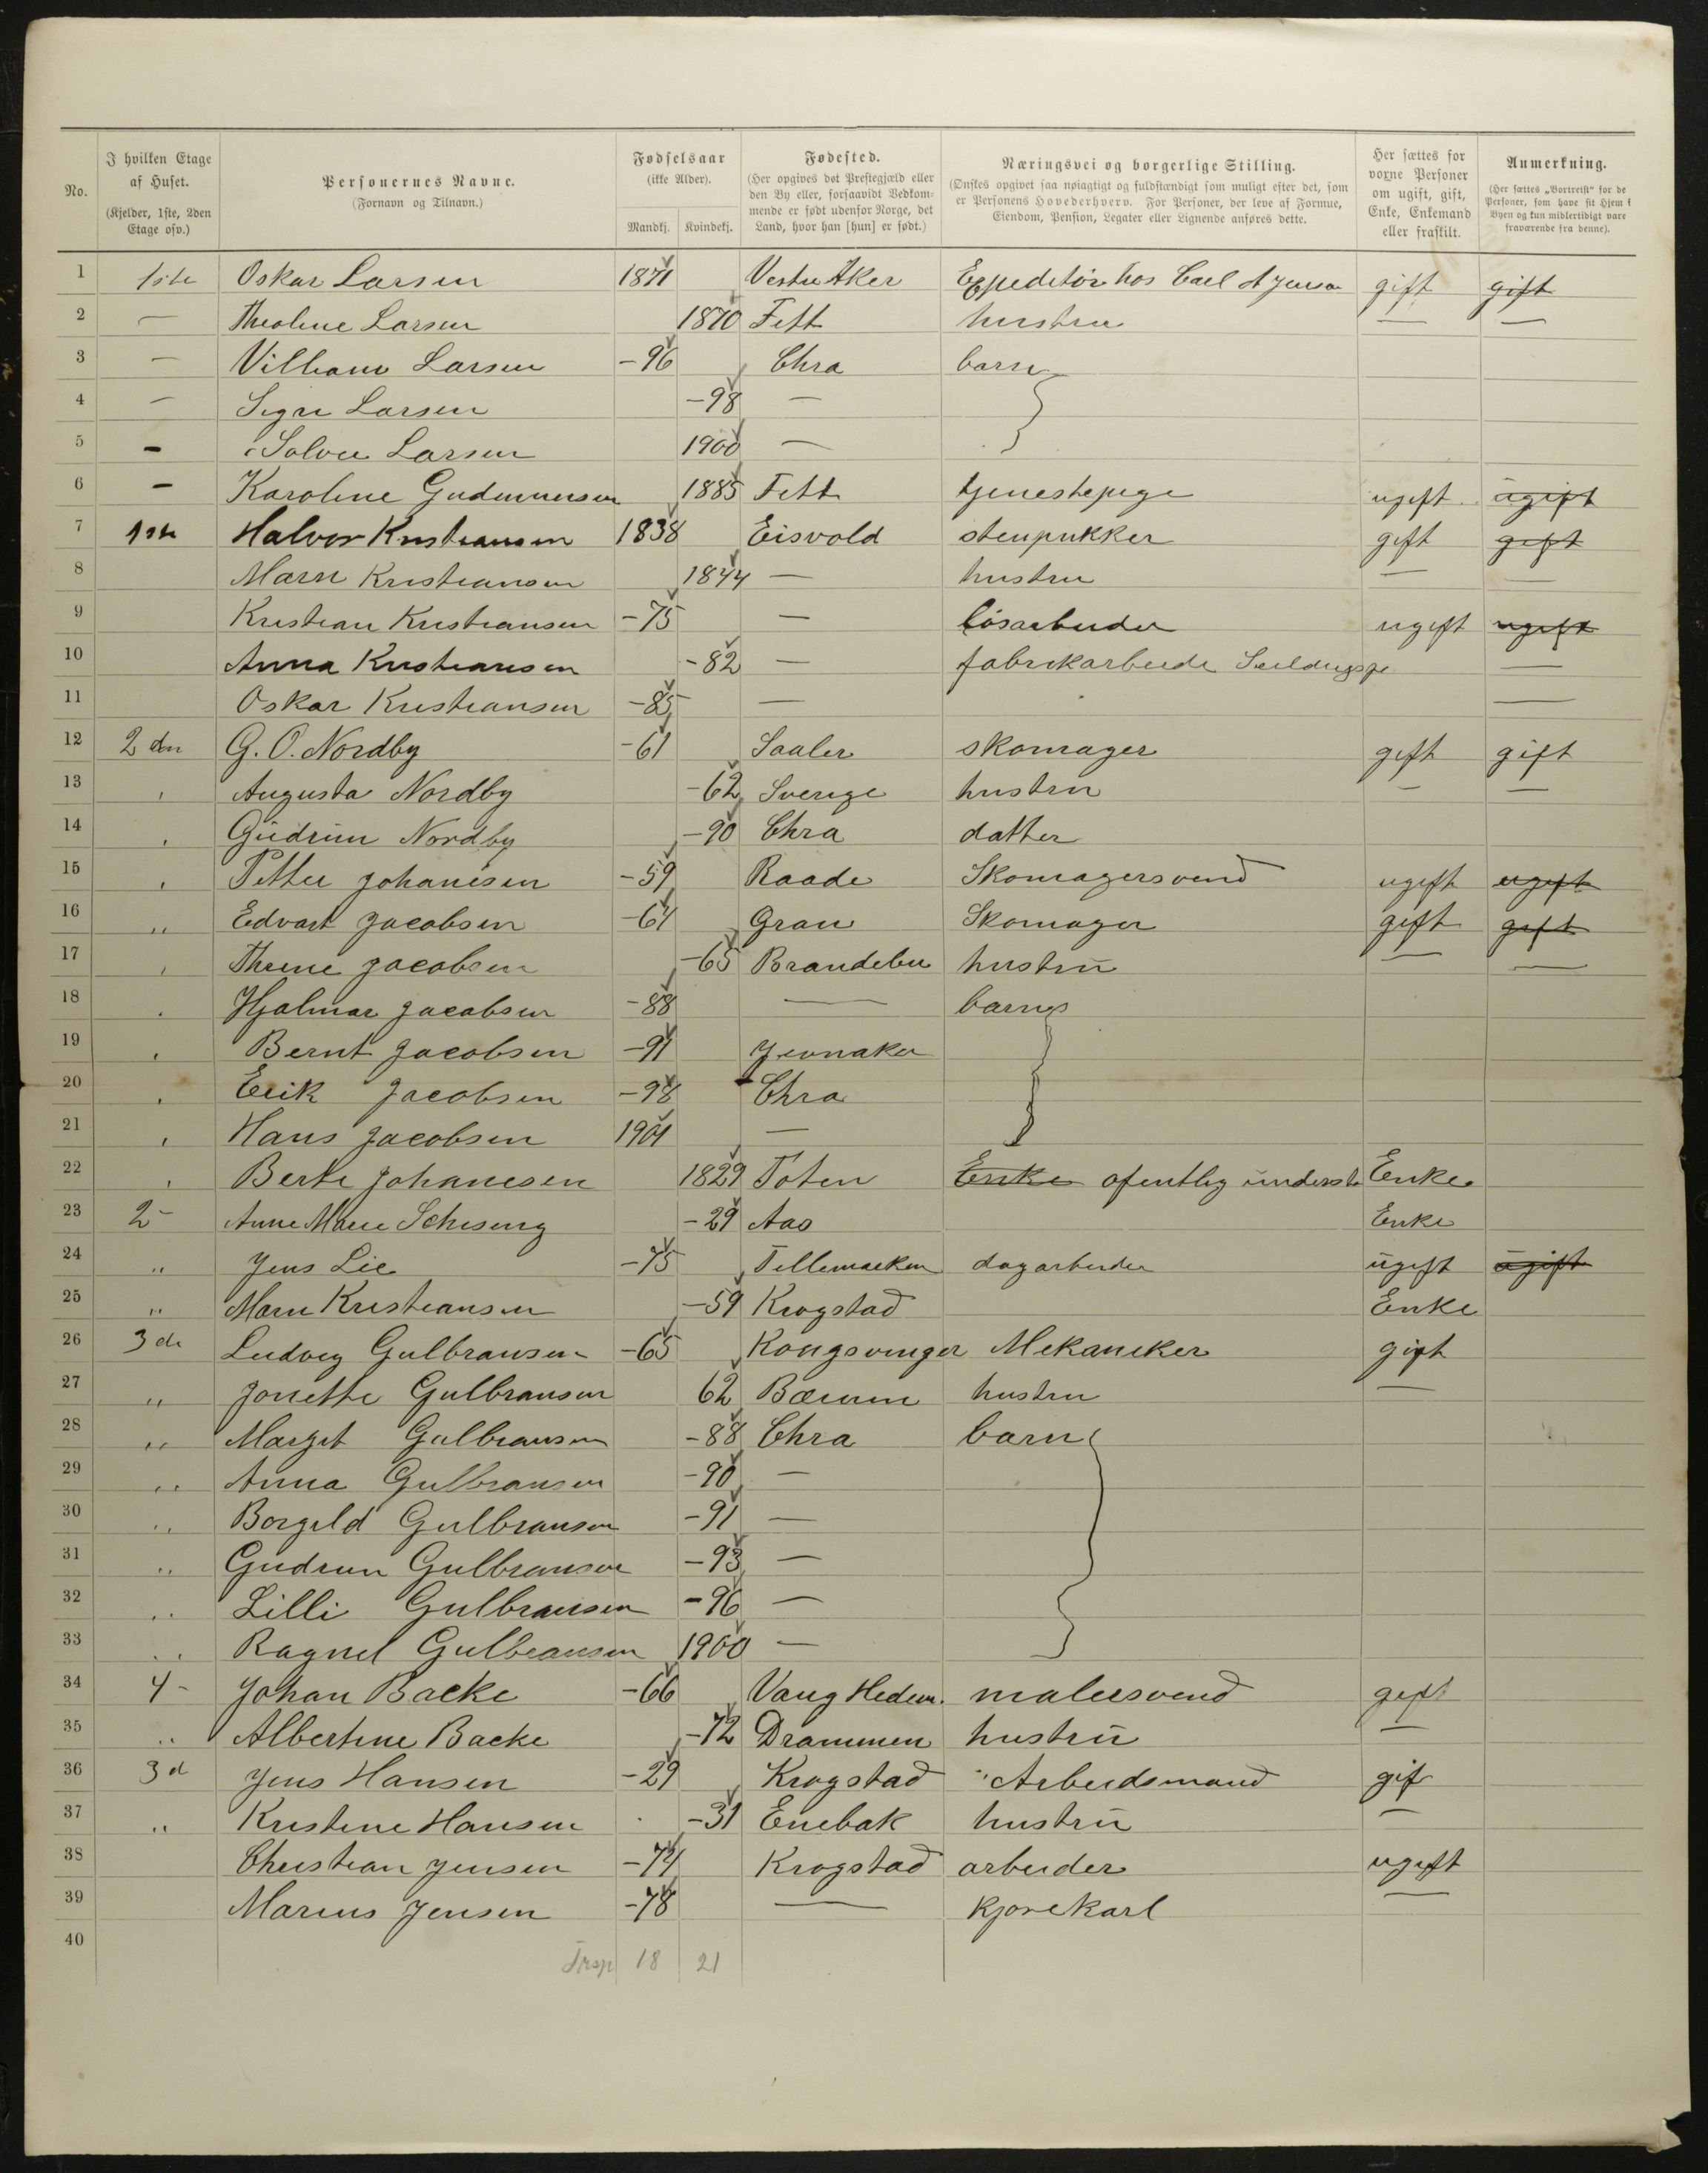 No.
I hvilken Etage af Huset. (Kjelder, 1ste, 2den Etage osv.)
Personernes Navne. (Fornavn og Tilnavn.)
Fødselsaar (ikke Alder). Mandkj. Kvindekj.
Fødested. (Her opgives det Prestegjæld eller den By eller, forsaavidt Vedkommende er født udenfor Norge, det Land, hvor han [hun] er født.)
Næringsvei og borgerlige Stilling. (Ønskes opgivet saa nøiagtigt og fuldstændigt som muligt efter det, som er Personens Hovederhverv. For Personer, der leve af Formue, Eiendom, Pension, Legater eller Lignende anføres dette.)
Her sættes for voxne Personer om ugift, gift, Enke, Enkemand eller fraskilt.
Anmerkning. (Her sættes „Bortreist“ for de Personer, som have sit Hjem i Byen og kun midlertidigt vare fraværende fra denne).
1 1ste Oskar Larsen 1871 Vestre Aker Expeditør hos Carl A Jensen gift gift
2 — Theoline Larsen 1870 Fett hustru — —
3 — Vilham Larsen –96 Chra barn
4 — Sigri Larsen –98 —
5 – Solvei Larsen 1900 —
6 – Karoline Gudmunsen 1885 Fett tjenestepige ugift ugift
7 1ste Halvor Kristiansen 1838 Eisvold stenpukker gift gift
8 Marn Kristiansen 1844 — hustru — —
9 Kristian Kristiansen –75 — løsarbeider ugift ugift
10 Anna Kristiansen –82 — fabrikarbeide —
11 Oskar Kristiansen –85 — —
12 2den G. O. Nordby –61 Saaler skomager gift gift
13 Augusta Nordby –62 Sverige hustru — —
14 Gudrun Nordby –90 Chra datter
15 Petter Johanesen –59 Raade Skomagersvend ugift ugift
16 ,, Edvart Jacobsen –64 Gran Skomager gift gift
17 Thrine Jacobsen –65 Brandebu hustru — —
18 Hjalmar Jacobsen –88 — barn
19 Bernt Jacobsen –91 Jevnaker
20 Erik Jacobsen –98 Chra
21 Hans Jacobsen 1901 —
22 Berte Johanesen 1829 Toten Enke ofentlig underst Enke
23 2– Anne Marie –29 Aas Enke
24 ,, Jens Lie –75 Tellemarken dagarbeider ugift ugift
25 ,, Marn Kristiansen –59 Krogstad Enke
26 3de Ludvig Gulbransen –65 Kongsvinger Mekaniker gift
27 ,, Jonette Gulbransen 62 Bærum hustru —
28 ,, Margit Gulbransen –88 Chra barn
29 ,, Anna Gulbransen –90 —
30 ,, Borgild Gulbransen –91 —
31 ,, Gudrun Gulbransen –93 —
32 ,, Lilli Gulbransen –96 —
33 ,, Ragnel Gulbransen 1900 —
34 4– Johan Backe –66 Vang Hedem. malersvend gift
35 ,, Albertine Backe –72 Drammen hustru —
36 3d Jens Hansen –29 Krogstad Arbeidsmand gif
37 ,, Kristine Hansen –31 Enebak hustru —
38 Christian Jensen –74 Krogstad arbeider ugift
39 Marius Jensen –78 — Kjørekarl —
40
18 21